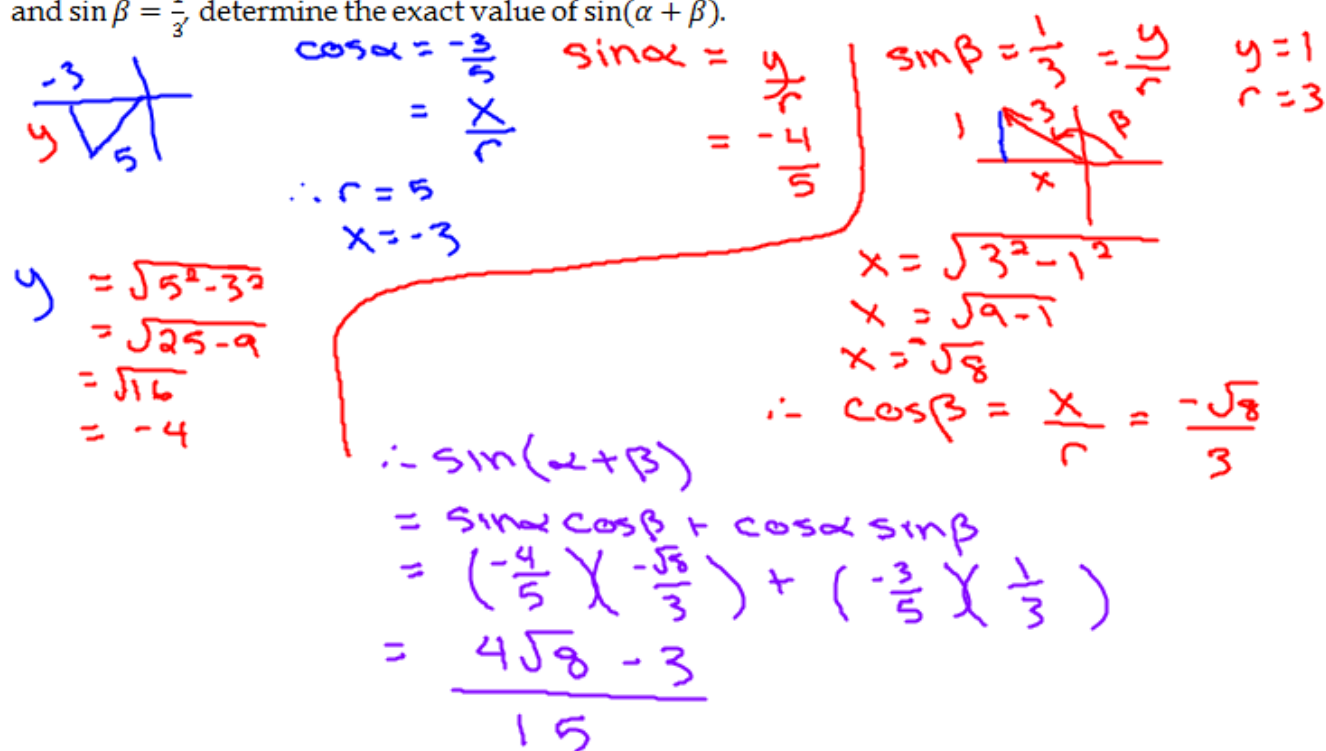 and sin β = 1/3, determine the exact value of sin(α + β).
-3
y
5
cosα = -3/5
= x/r
∴ r = 5
x = -3
sinα = y/r
= -4/5
sinβ = 1/3 = y/r
y = 1
r = 3
1
3
β
x
y = √5²-3²
= √25-9
= √16
= -4
x = √3²-1²
x = √9-1
x = -√8
∴ cosβ = x/r = -√8/3
∴ sin(α+β)
= sinα cosβ + cosα sinβ
= (-4/5)(-√8/3) + (-3/5)(1/3)
= 4√8 - 3
15